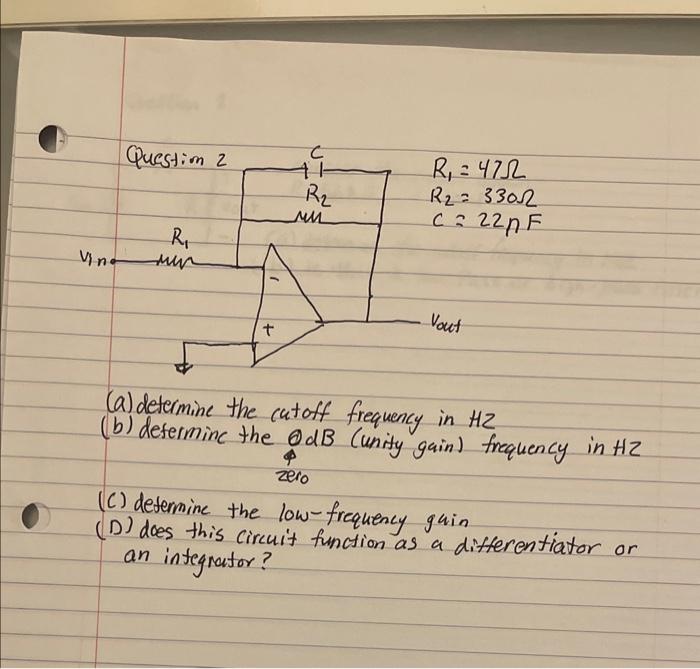 Question 2
C
R₁ = 47Ω
R₂
R₂ = 330Ω
C = 22nF
R₁
Vin
-
+
Vout
(a) determine the cutoff frequency in HZ
(b) determine the 0dB (unity gain) frequency in HZ
zero
(C) determine the low-frequency gain
(D) does this circuit function as a differentiator or
an integrator?